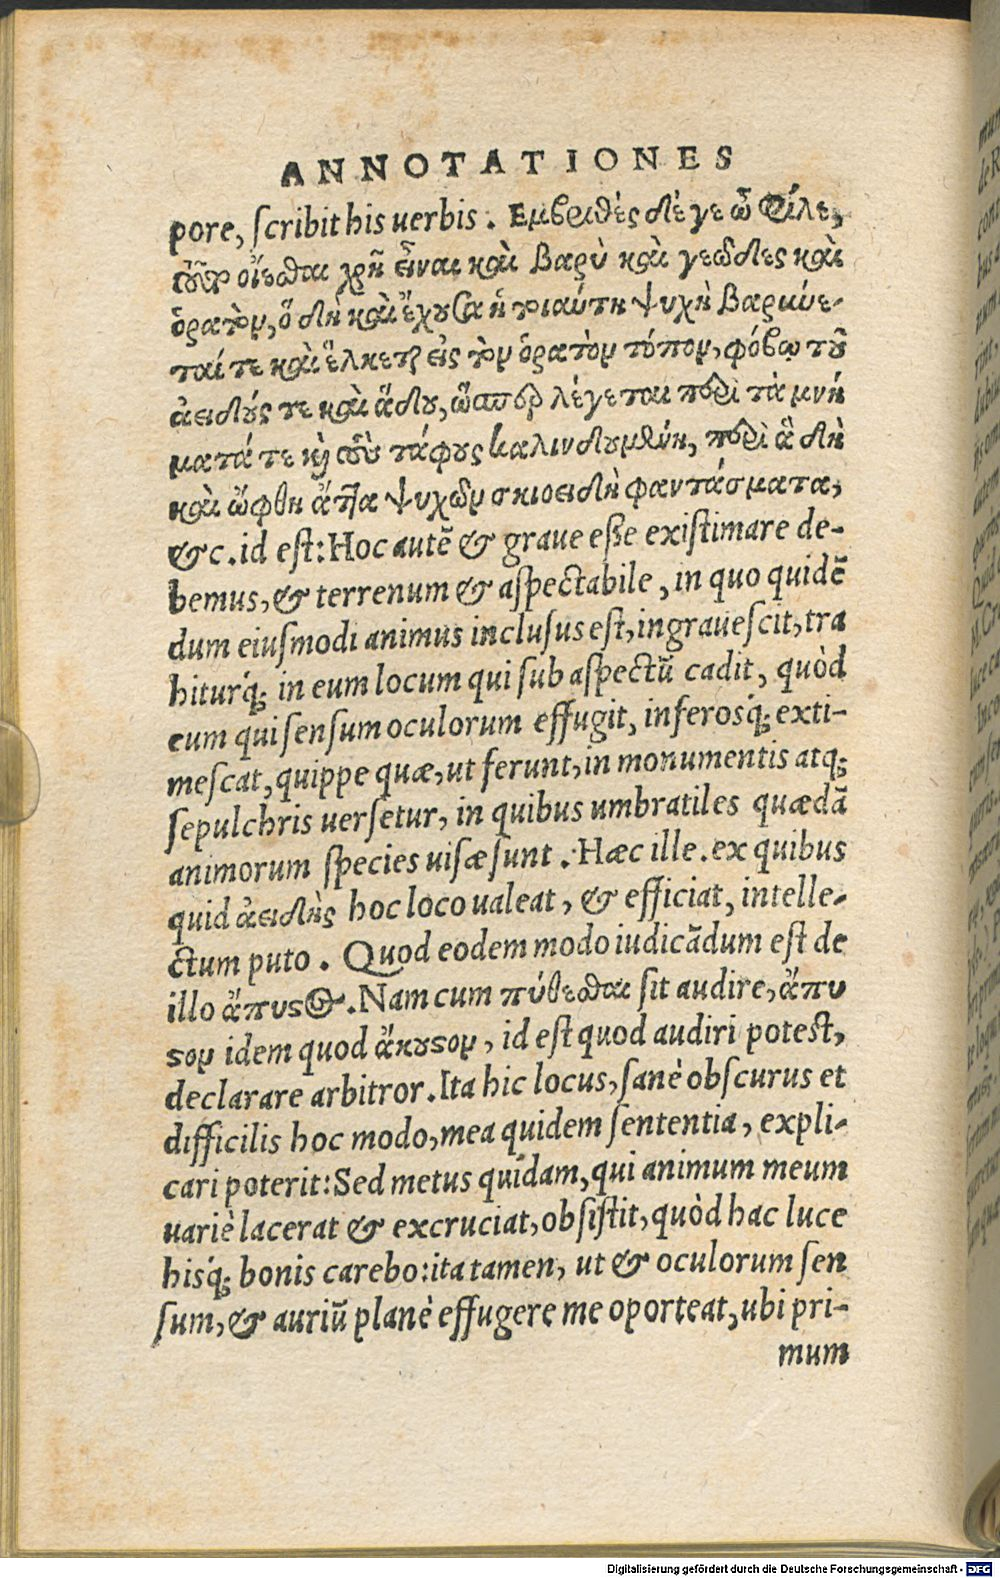 ANNOTATIONES
pore, scribit his uerbis. Εμβριθὲς δέ γε ὦ φίλε,
τοῦτο οἴεσθαι χρῆ εἶναι καὶ βαρὺ καὶ γεῶδες καὶ
ὁρατὸν, ὃ δὴ καὶ ἔχουσα ἡ τοιαύτη ψυχὴ βαρύνε-
ταί τε καὶ ἕλκεται εἰς τὸν ὁρατὸν τόπον, φόβῳ τοῦ
ἀειδοῦς τε καὶ ἅδου, ὥσπερ λέγεται περὶ τὰ μνή
ματά τε καὶ τοὺς τάφους καλινδουμένη, περὶ ἃ δὴ
καὶ ὤφθη ἄττα ψυχῶν σκιοειδῆ φαντάσματα,
&c. id est: Hoc autẽ & graue esse existimare de-
bemus, & terrenum & aspectabile, in quo quidẽ
dum eiusmodi animus inclusus est, ingrauescit, tra
hiturq́; in eum locum qui sub aspectũ cadit, quòd
eum qui sensum oculorum effugit, inferosq́; exti-
mescat, quippe quæ, ut ferunt, in monumentis atq;
sepulchris uersetur, in quibus umbratiles quædã
animorum species uisæ sunt. Hæc ille. ex quibus
quid ἀειδὴς hoc loco ualeat, & efficiat, intelle-
ctum puto. Quod eodem modo iudicãdum est de
illo ἄπυστος. Nam cum πύθεσθαι sit audire, ἄπυ
στον idem quod ἄκουστον, id est quod audiri potest,
declarare arbitror. Ita hic locus, sanè obscurus et
difficilis hoc modo, mea quidem sententia, expli-
cari poterit: Sed metus quidam, qui animum meum
uariè lacerat & excruciat, obsistit, quòd hac luce
hisq́; bonis carebo: ita tamen, ut & oculorum sen
sum, & auriũ planè effugere me oporteat, ubi pri-
mum
Digitalisierung gefördert durch die Deutsche Forschungsgemeinschaft - DFG